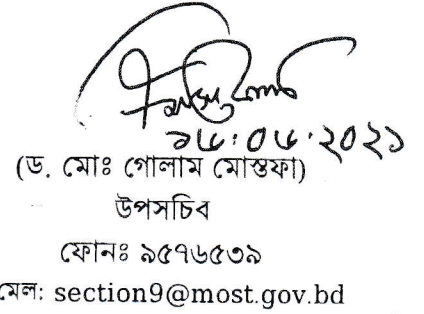 ১৬.০৬.২০২১
(ড. মোঃ গোলাম মোস্তফা)
উপসচিব
ফোনঃ ৯৫৭৬৫৩৯
মেল: section9@most.gov.bd